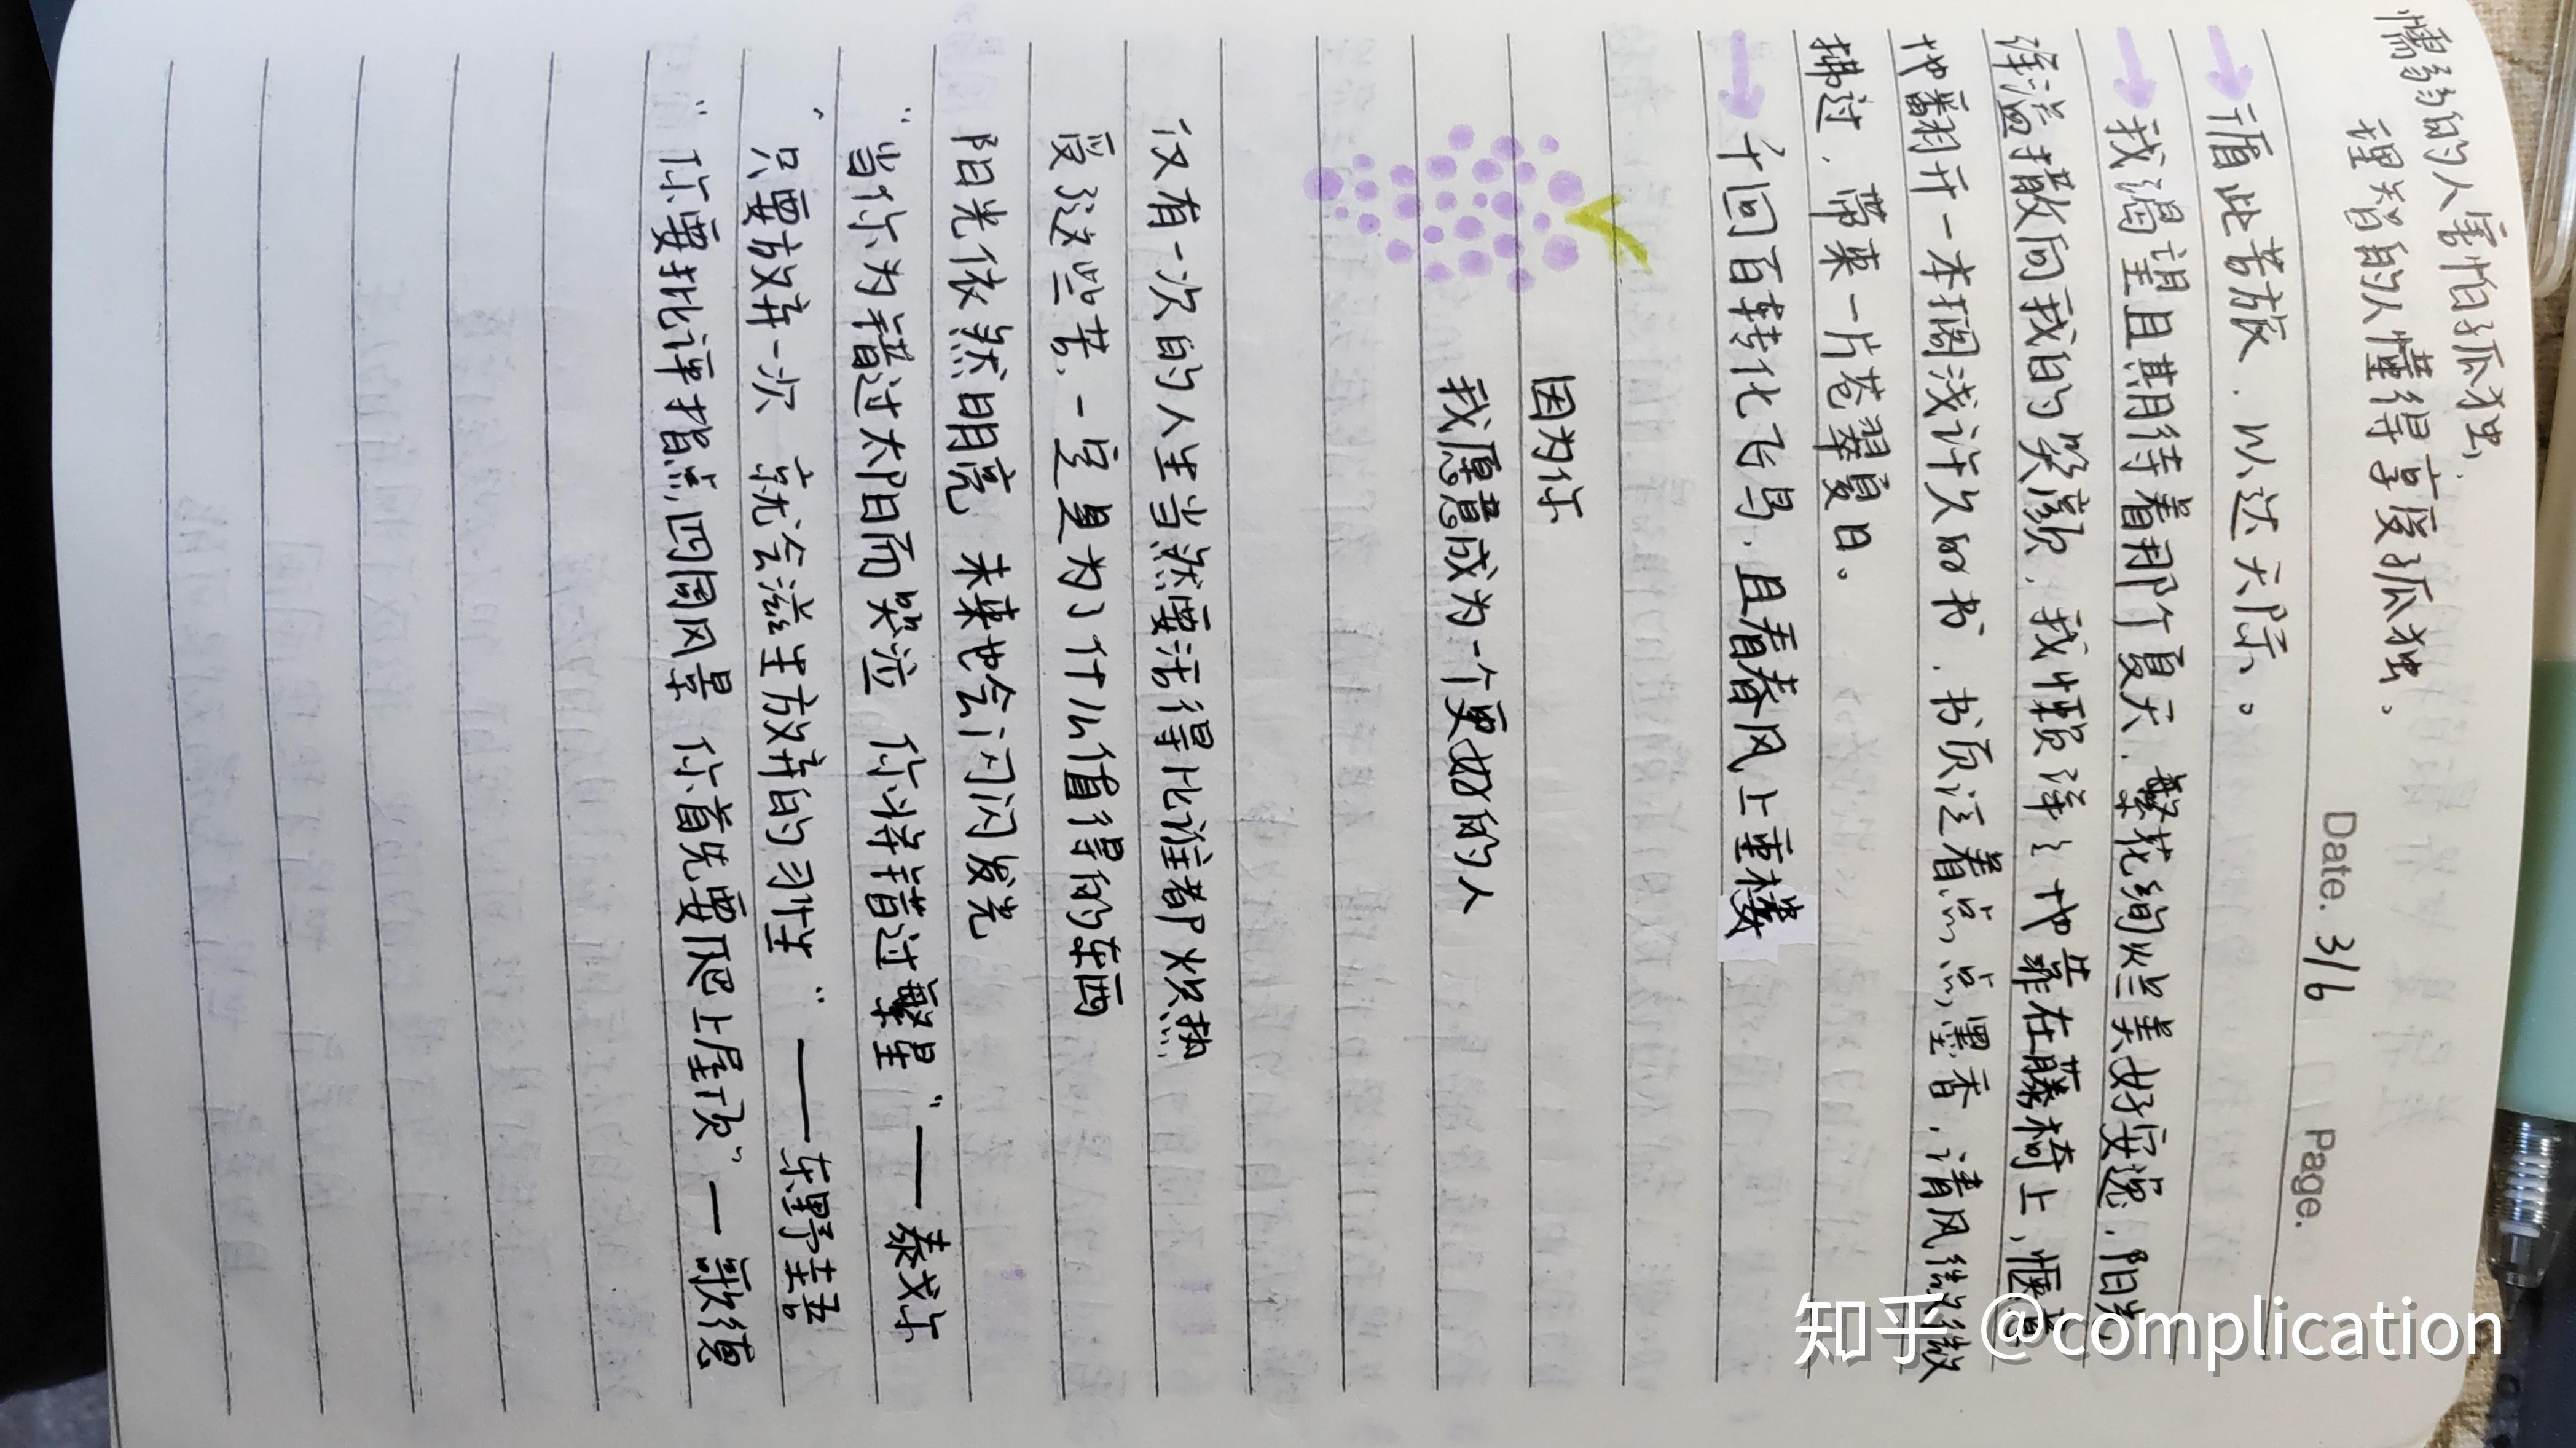 懦弱的人害怕孤独,
理智的人懂得享受孤独。
Date. 3/6
Page.
循此苦旅,以达天际。
我渴望且期待着那个夏天,繁花绚烂美好安逸,阳光
洋溢撒向我的笑颜,我懒洋洋地靠在藤椅上,惬意
地翻开一本搁浅许久的书,书页泛着点点墨香,清风微微
拂过,带来一片苍翠夏日。
千回百转化飞鸟,且看春风上重楼
因为你
我愿意成为一个更好的人
仅有一次的人生当然要活得比谁都炽热
受了这些苦,一定是为了什么值得的东西
阳光依然明亮 未来也会闪闪发光
“当你为错过太阳而哭泣 你将错过繁星”——泰戈尔
“只要放弃一次 就会滋生放弃的习性”——东野圭吾
“你要批评指点四周风景 你首先要爬上屋顶”—歌德
知乎 @complication